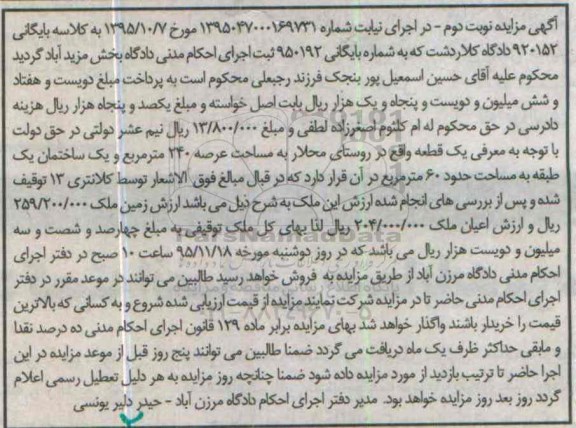 آگهی مزایده نوبت دوم - در اجرای نیابت شماره ۱۳۹۵۰۴۷۰۰۰۱۶۹۷۳۱ مورخ ۱۳۹۵/۱۰/۷ به کلاسه بایگانی
۹۲۰۱۵۲ دادگاه کلاردشت که به شماره بایگانی ۹۵۰۱۹۲ ثبت اجرای احکام مدنی دادگاه بخش مزید آباد گردید
محکوم علیه آقای حسین اسمعیل پور بنجک فرزند رجبعلی محکوم است به پرداخت مبلغ دویست و هفتاد
و شش میلیون و دویست و پنجاه و یک هزار ریال بابت اصل خواسته و مبلغ یکصد و پنجاه هزار ریال هزینه
دادرسی در حق محکوم له ام کلثوم اصغرزاده لطفی و مبلغ ۱۳/۸۰۰/۰۰۰ ریال نیم عشر دولتی در حق دولت
با توجه به معرفی یک قطعه واقع در روستای محلار به مساحت عرصه ۲۴۰ مترمربع و یک ساختمان یک
طبقه به مساحت حدود ۶۰ مترمربع در آن قرار دارد که در قبال مبالغ فوق الاشعار توسط کلانتری ۱۳ توقیف
شده و پس از بررسی های انجام شده ارزش این ملک به شرح ذیل می باشد ارزش زمین ملک ۲۵۹/۲۰۰/۰۰۰
ریال و ارزش اعیان ملک ۲۰۴/۰۰۰/۰۰۰ ریال لذا بهای کل ملک توقیفی به مبلغ چهارصد و شصت و سه
میلیون و دویست هزار ریال می باشد که در روز دوشنبه مورخه ۹۵/۱۱/۱۸ ساعت ۱۰ صبح در دفتر اجرای
احکام مدنی دادگاه مرزن آباد از طریق مزایده به فروش خواهد رسید طالبین می توانند در موعد مقرر در دفتر
اجرای احکام مدنی حاضر تا در مزایده شرکت نمایند مزایده از قیمت ارزیابی شده شروع و به کسانی که بالاترین
قیمت را خریدار باشند واگذار خواهد شد بهای مزایده برابر ماده ۱۲۹ قانون اجرای احکام مدنی ده درصد نقدا
و مابقی حداکثر ظرف یک ماه دریافت می گردد ضمنا طالبین می توانند پنج روز قبل از موعد مزایده در این
اجرا حاضر تا ترتیب بازدید از مورد مزایده داده شود ضمنا چنانچه روز مزایده به هر دلیل تعطیل رسمی اعلام
گردد روز بعد روز مزایده خواهد بود. مدیر دفتر اجرای احکام دادگاه مرزن آباد - حیدر دلیر یونسی